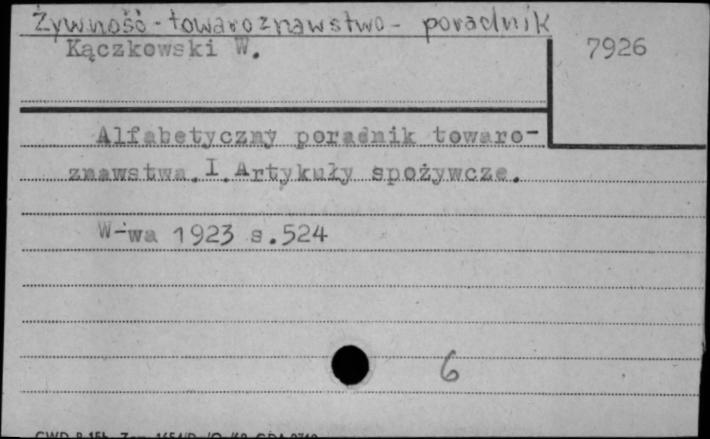 Żywność - towaroznawstwo - poradnik
Kączkowski W.
7926
Alfabetyczny poradnik towaro-
znawstwa. I. Artykuły spożywcze.
W-wa 1923 s.524
6